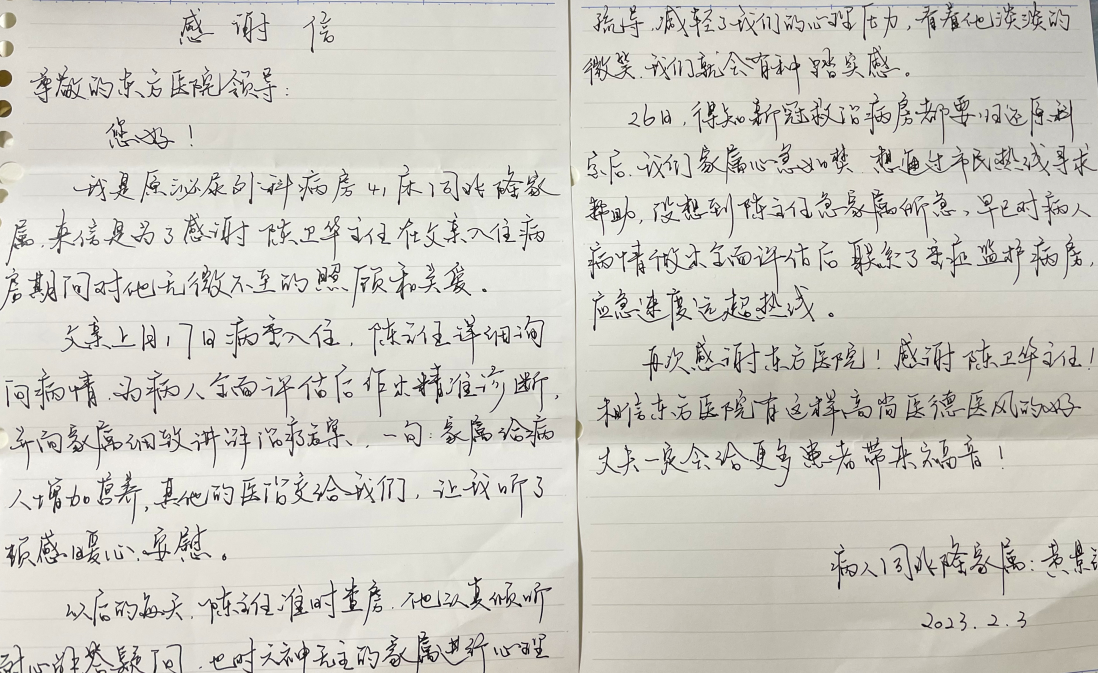 感谢信
尊敬的东方医院领导：
您好！
我是原泌尿外科病房41床闫兆隆家
属，来信是为了感谢陈卫华主任在父亲入住病
房期间对他无微不至的照顾和关爱。
父亲上月17日病重入住，陈主任详细询
问病情，为病人全面评估后作出精准诊断，
并向家属细致讲评治疗方案，一句：家属给病
人增加营养，其他的医治交给我们，让我听了
顿感暖心、安慰。
以后的每天，陈主任准时查房，他认真倾听
耐心解答疑问，也对六神无主的家属进行心理
疏导，减轻了我们的心理压力，看着他淡淡的
微笑，我们就会有种踏实感。
26日，得知新冠救治病房都要归还原科
室后，我们家属心急如焚，想通过市民热线寻求
帮助，没想到陈主任急家属所急，早已对病人
病情做出全面评估后联系了重症监护病房，
应急速度远超热线。
再次感谢东方医院！感谢陈卫华主任！
相信东方医院有这样高尚医德医风的好
丈夫一定会给更多患者带来福音！
病人闫兆隆家属：黄景
2023.2.3